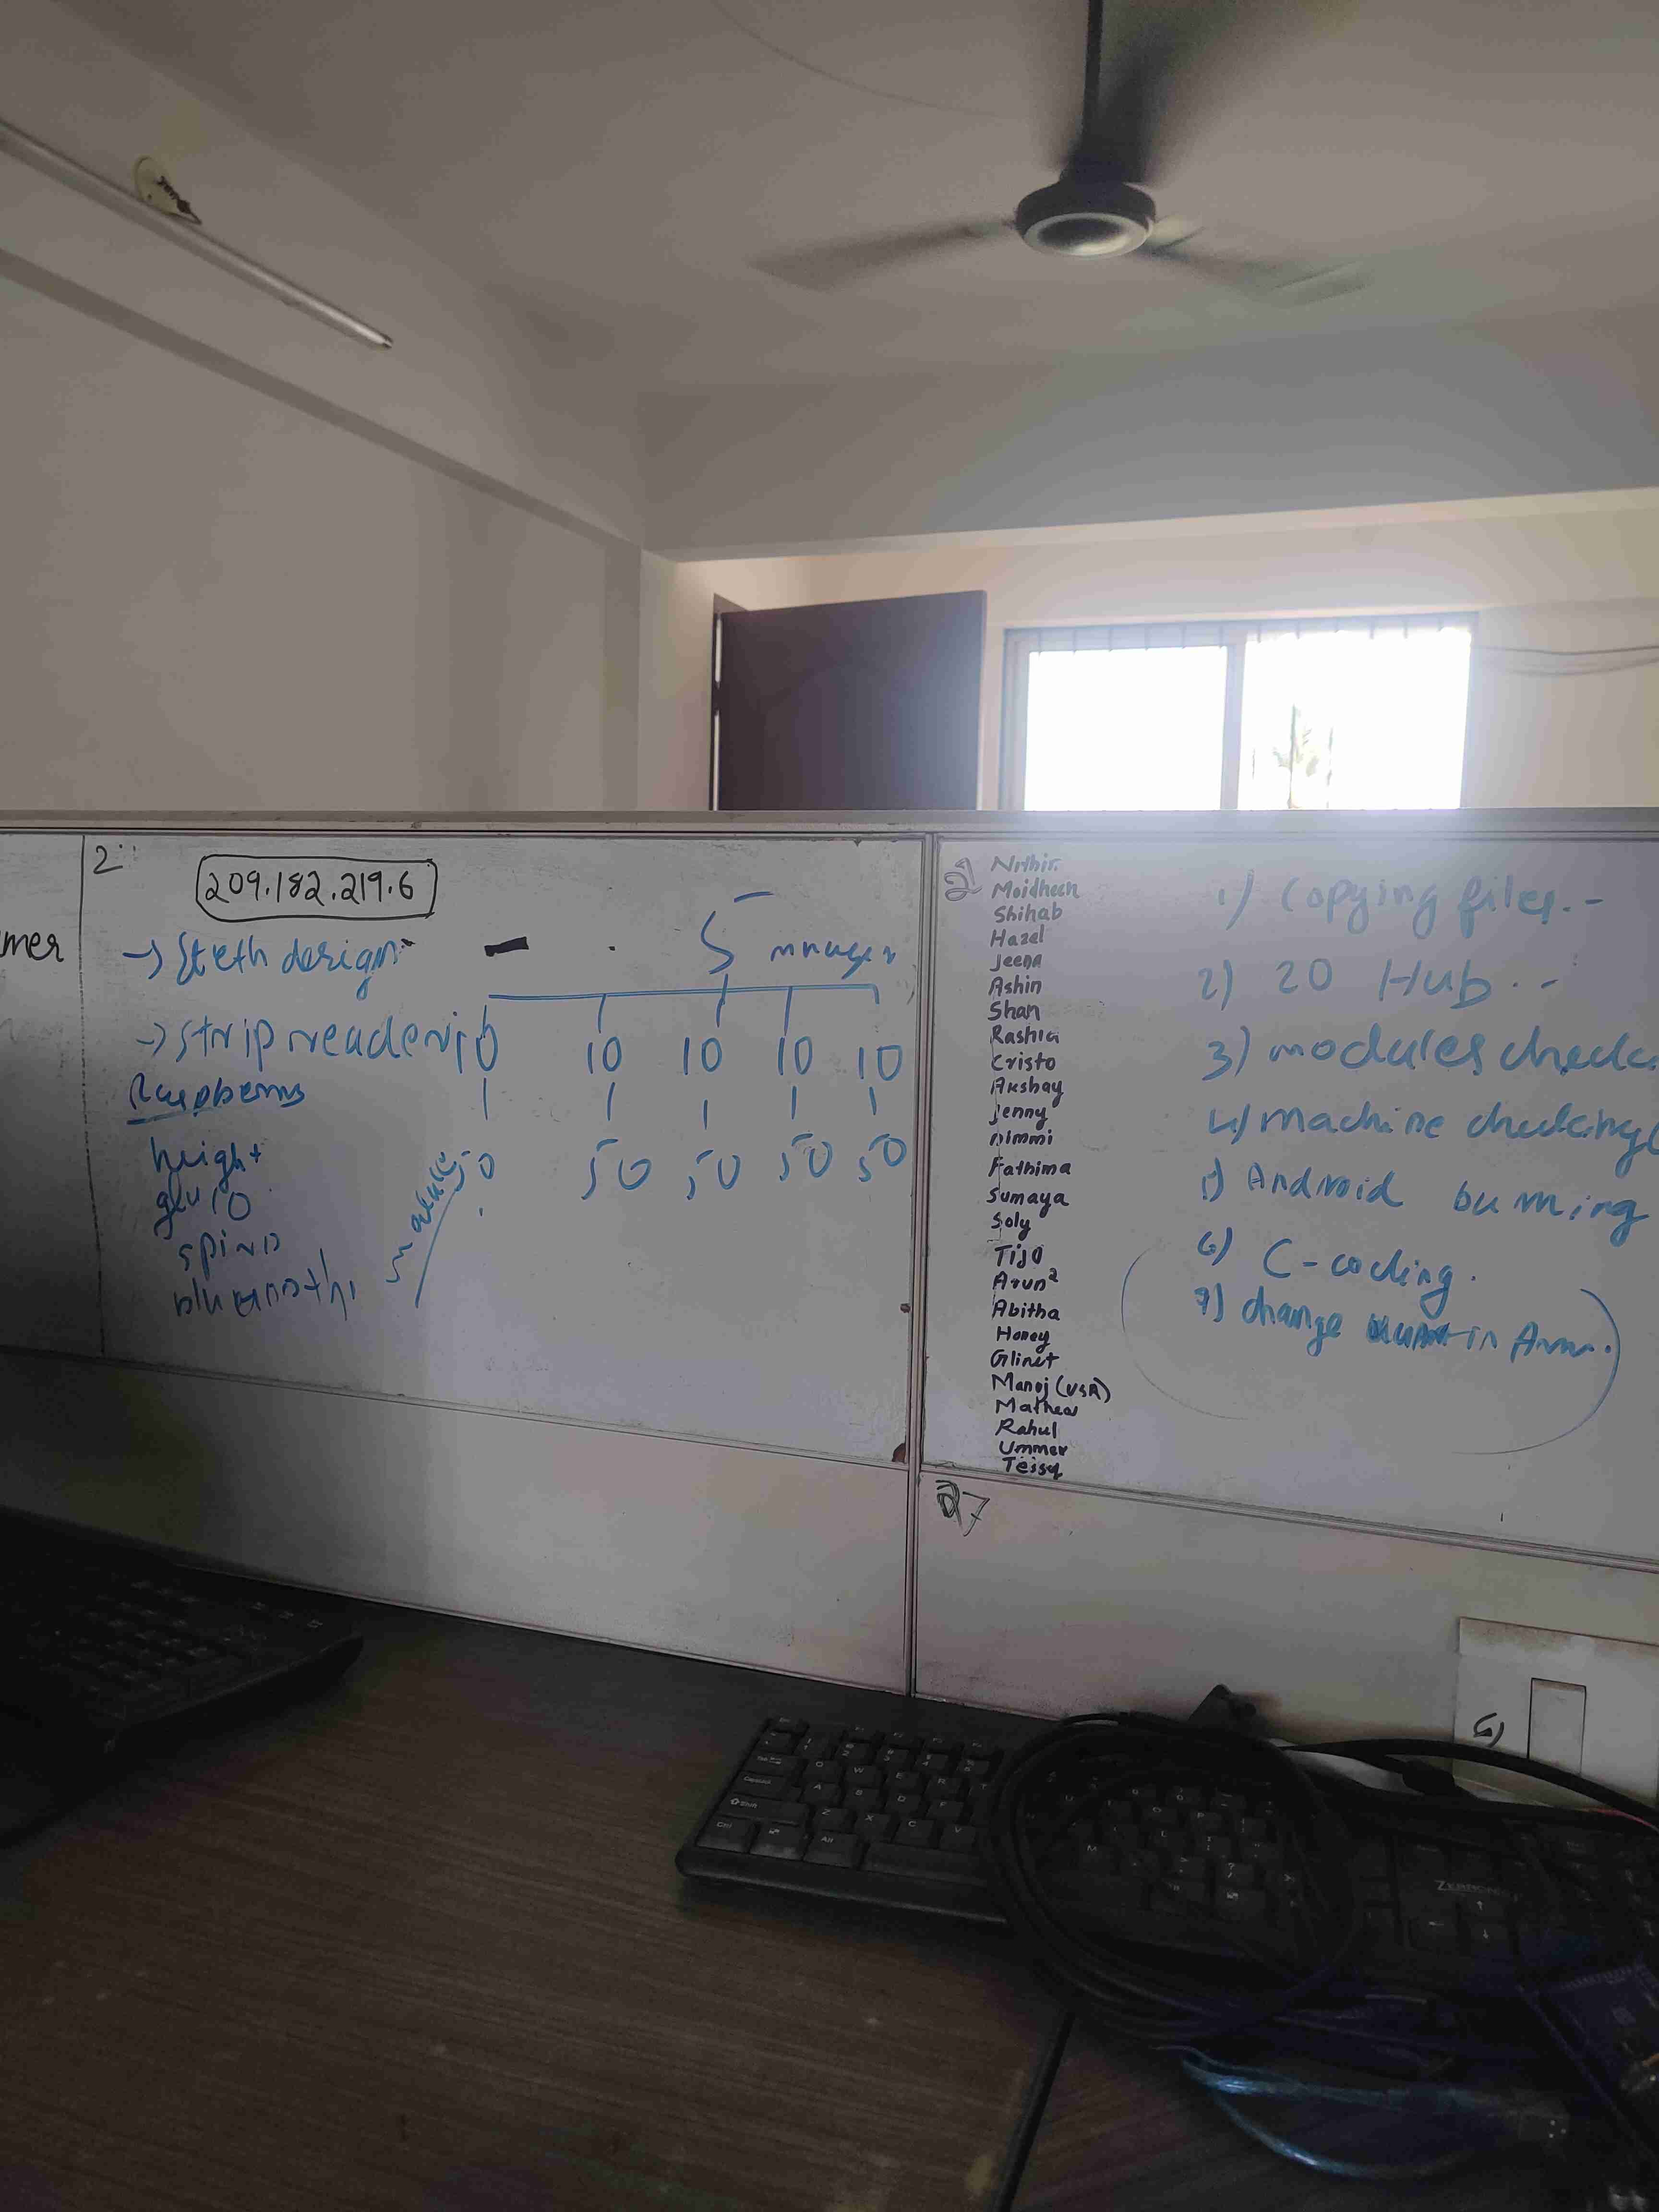 mer
2
209.182.219.6
→ Steth design
5 manager
→ Strip reader
10 10 10 10 10
Raspberry
50 50 50 50 50
height
gluco
spiro
21
Nithin
Moidheen
Shihab
Hazel
Jeena
Ashin
Shan
Rashia
Cristo
Akshay
Jenny
Nimmi
Fathima
Sumaya
Soly
Tijo
Arun²
Abitha
Honey
Glinet
Manoj (USA)
Mathew
Rahul
Ummer
Tessy
27
1) Copying files.-
2) 20 Hub.-
3) modules check
4) machine checking
5) Android burning
6) C-coding.
7) change in